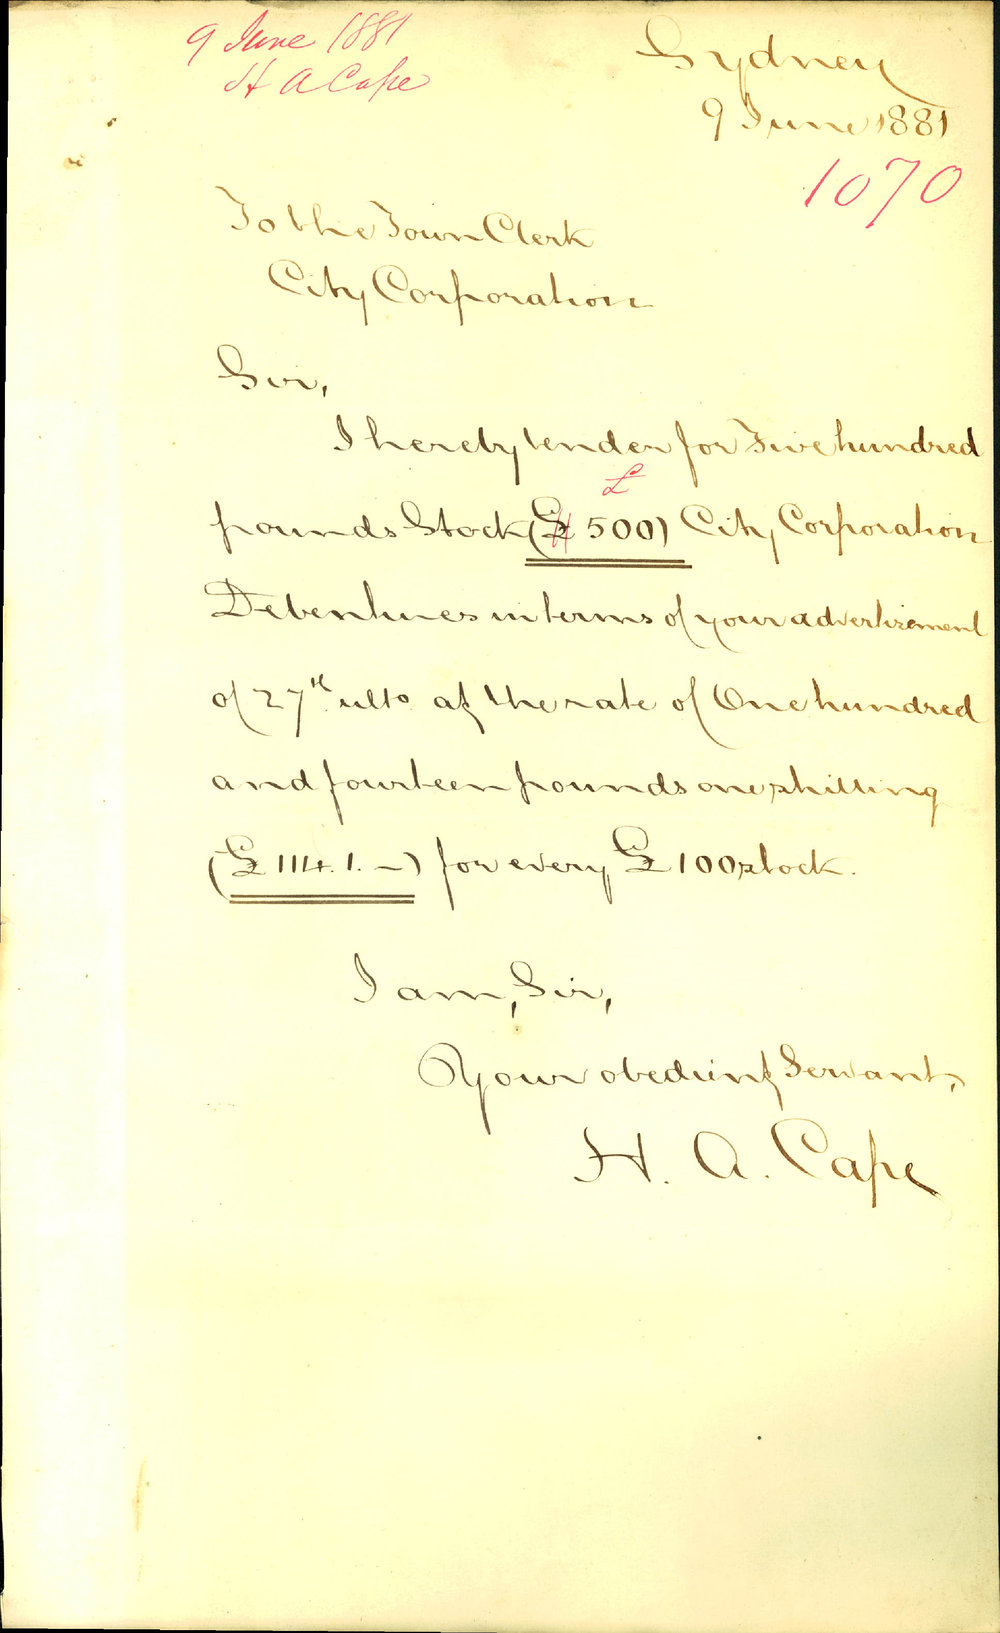 9 June 1881
H A Cape
Sydney
9 June 1881
1070
To the Town Clerk
City Corporation
Sir,
I hereby tender for Five hundred
£
pounds Stock (£ 500) City Corporation
Debentures in terms of your advertisement
of 27th ulto at the rate of One hundred
and fourteen pounds one shilling
(£ 114. 1. –) for every £100 stock.
I am, Sir,
Your obedient Servant,
H. A. Cape